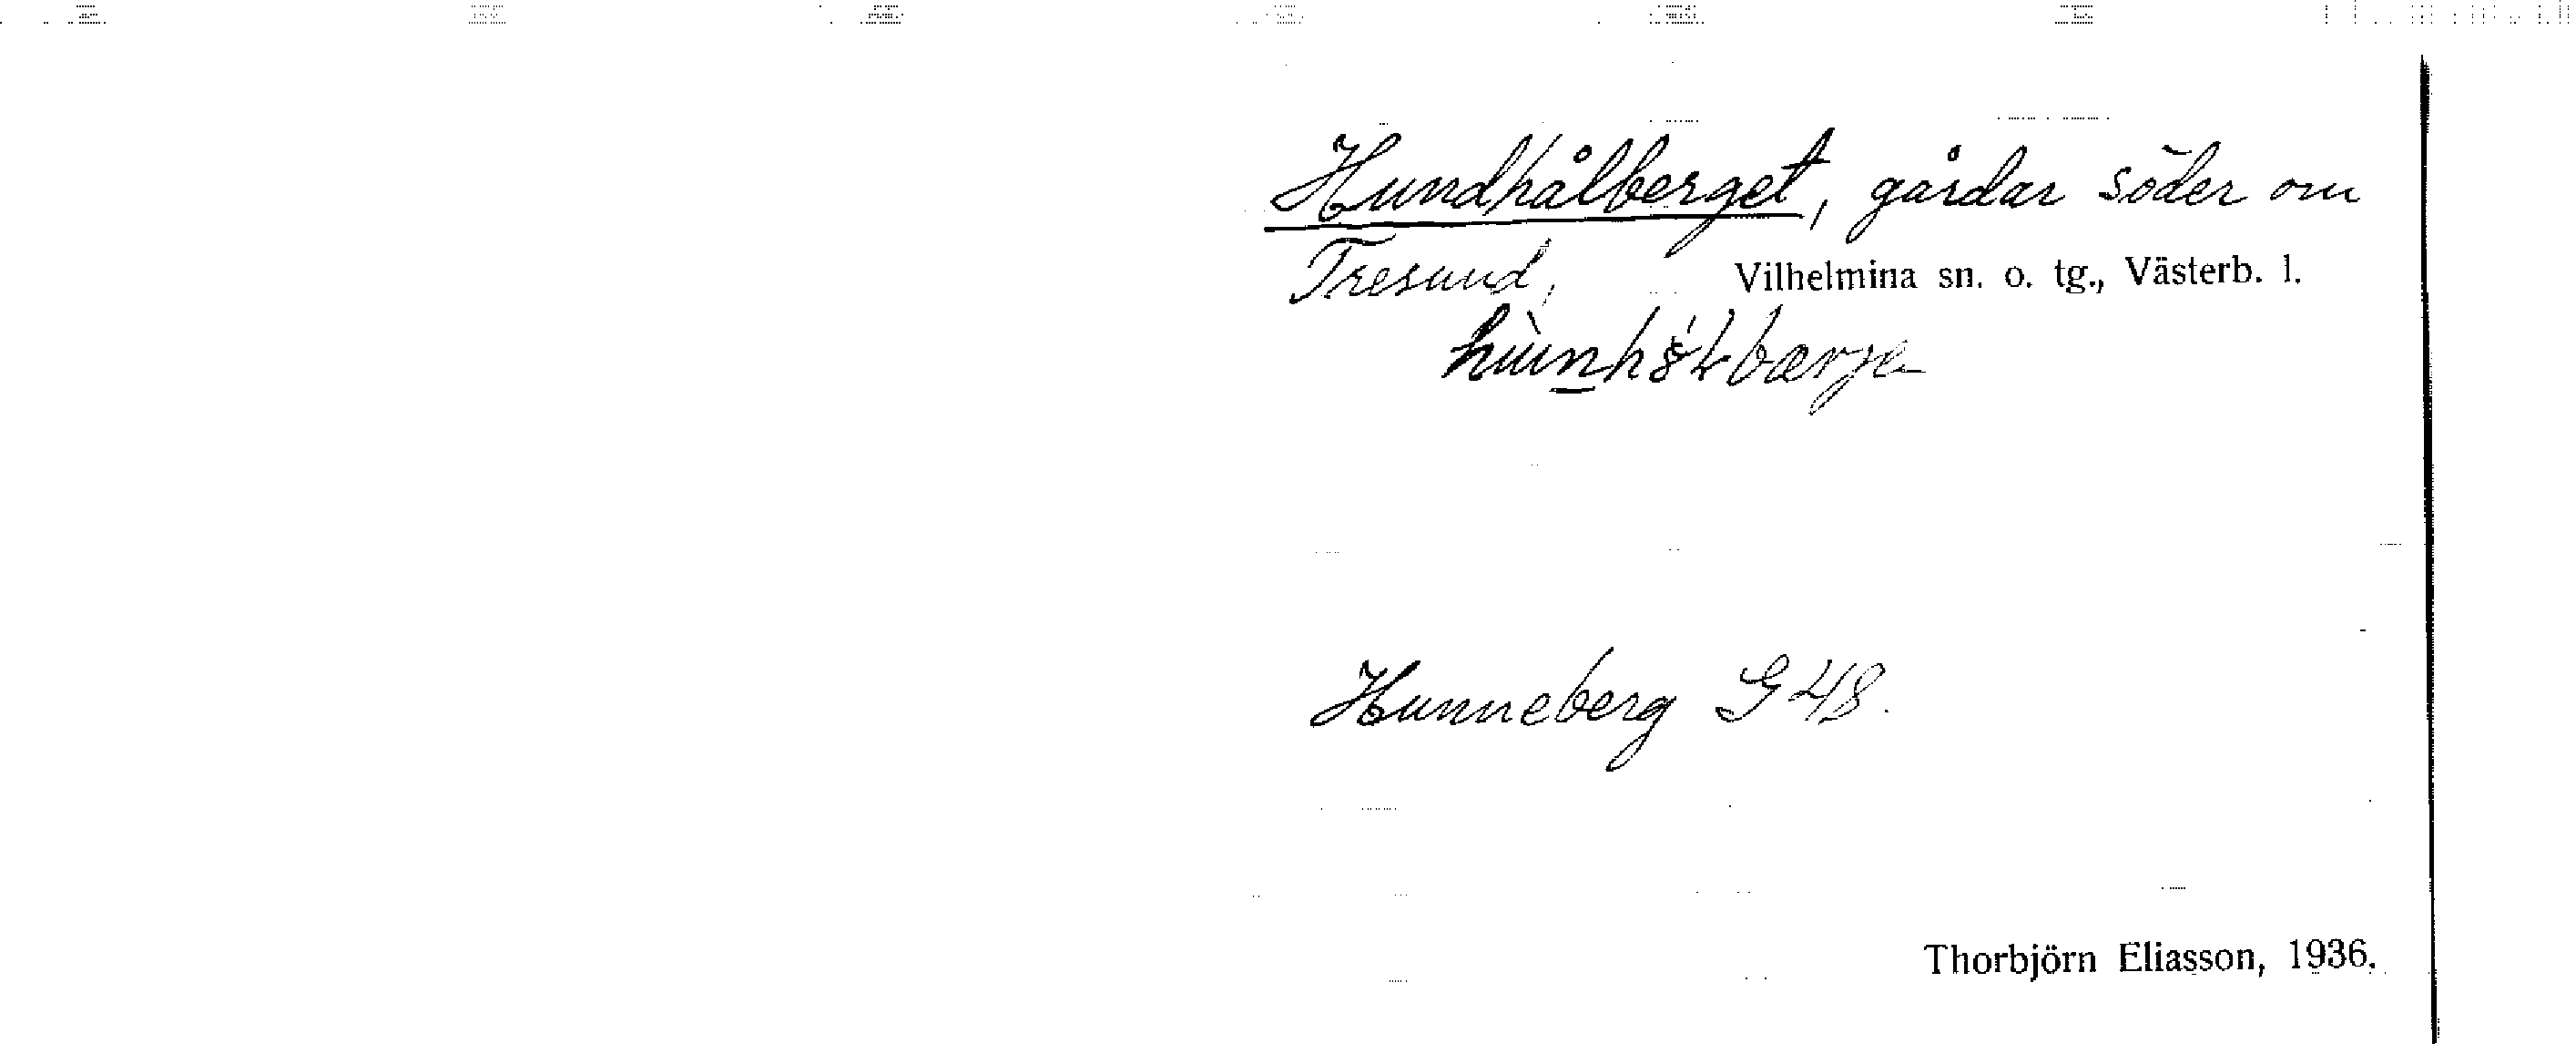 Hundhålberget, gårdar söder om
Tresund, Vilhelmina sn. o. tg., Västerb. l.
Hunneberg G48.
Thorbjörn Eliasson, 1936.